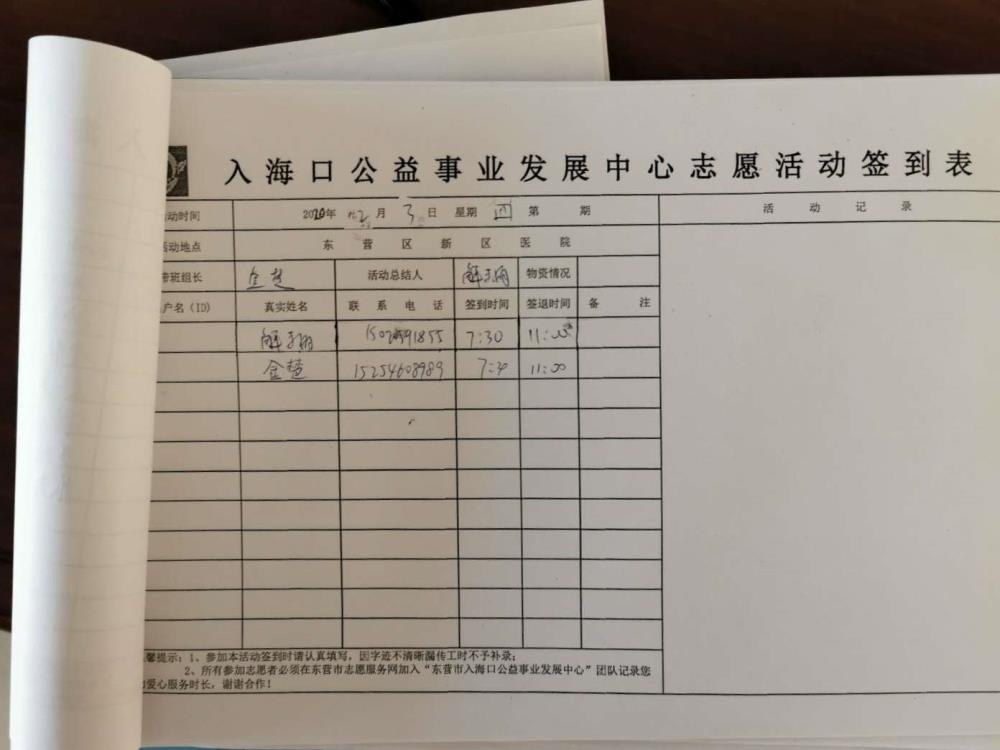 入海口公益事业发展中心志愿活动签到表
动时间 2020年 月 3日 星期四 第 期 活动记录
活动地点 东营区新区医院
带班组长 金楚 活动总结人 解 物资情况
户名(ID) 真实姓名 联系电话 签到时间 签退时间 备注
解 7:30 11:00
金楚 15254608989 7:30 11:00
馨提示:1、参加本活动签到时请认真填写,因字迹不清晰漏传工时不予补录;
2、所有参加志愿者必须在东营市志愿服务网加入“东营市入海口公益事业发展中心”团队记录您
爱心服务时长,谢谢合作!